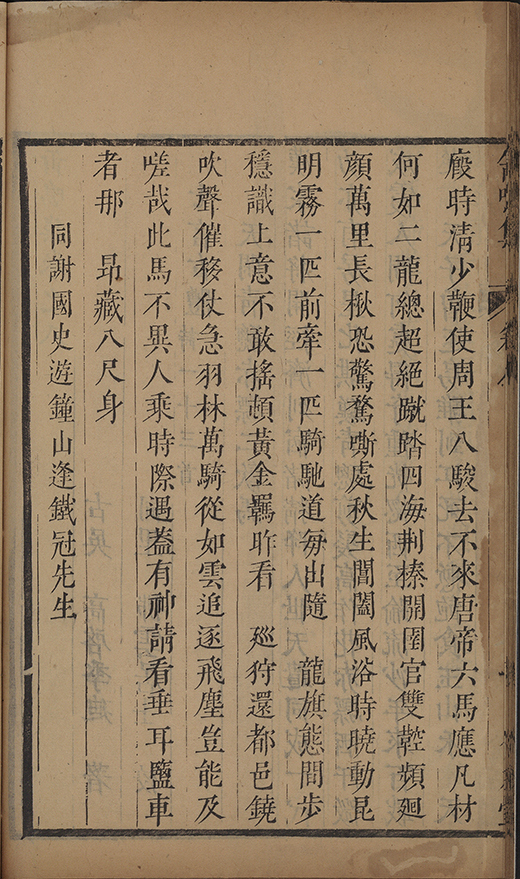 廄時清少鞭使周王八駿去不來唐帝六馬應凡材
何如二龍總超絕蹴踏四海荆榛開圉官雙鞚頻廻
顔萬里長楸恐驚騖嘶處秋生閶闔風浴時曉動昆
明霧一匹前牽一匹騎馳道每出隨　龍旗態間步
穩識上意不敢搖頓黃金羈昨看　廵狩還都邑鐃
吹聲催移仗急羽林萬騎從如雲追逐飛塵豈能及
嗟哉此馬不異人乘時際遇葢有神請看垂耳鹽車
者那　昂藏八尺身
同謝國史遊鐘山逢鐵冠先生